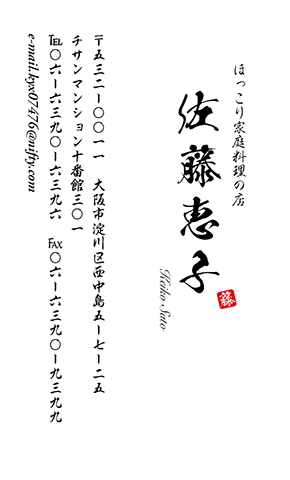 ほっこり家庭料理の店
佐藤恵子
Keiko Sato
〒五三二ー〇〇一一　大阪市淀川区西中島五ー七ー二五
チサンマンション十番館三〇一
℡〇六ー六三九〇ー九三七六　FAX〇六ー六三九〇ー九三九九
e-mail.kyx07476@nifty.com